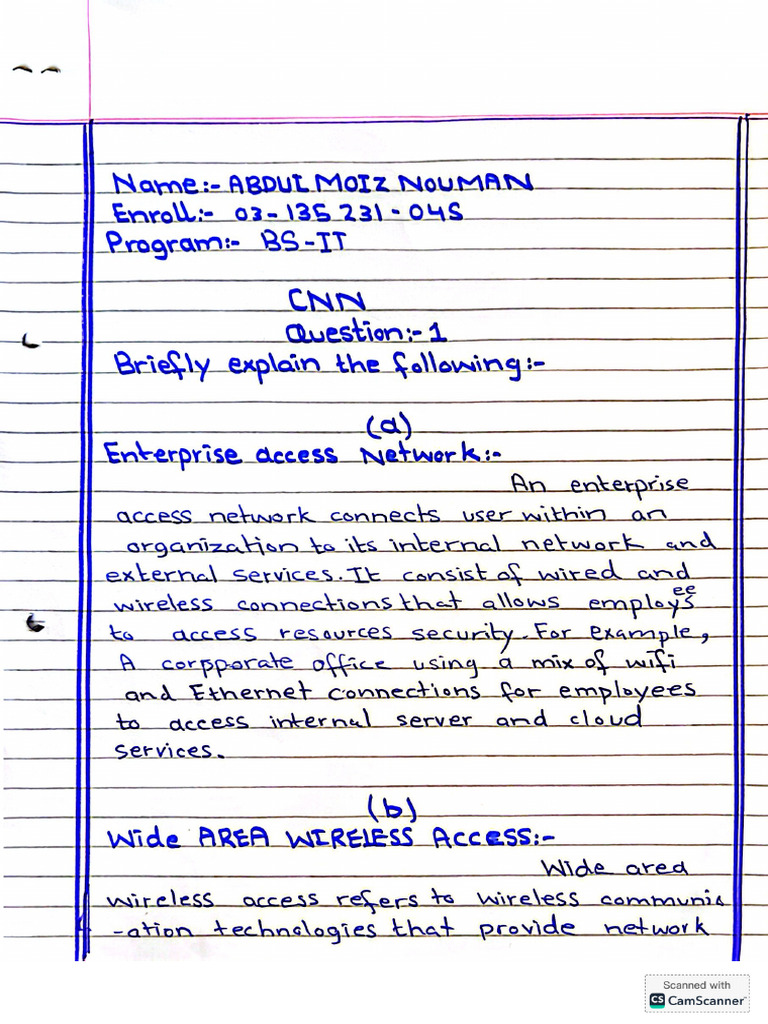 Name:- ABDUL MOIZ NOUMAN
Enroll:- 03-135 231-045
Program:- BS-IT
CNN
Question:-1
Briefly explain the following:-
(a)
Enterprise access Network:-
An enterprise
access network connects user within an
organization to its internal network and
external services. It consist of wired and
wireless connections that allows employees
to access resources security. For example,
A corpporate office using a mix of wifi
and Ethernet connections for employees
to access internal server and cloud
services.
(b)
Wide AREA WIRELESS Access:-
Wide area
wireless access refers to wireless communic
-ation technologies that provide network
Scanned with
CS CamScanner